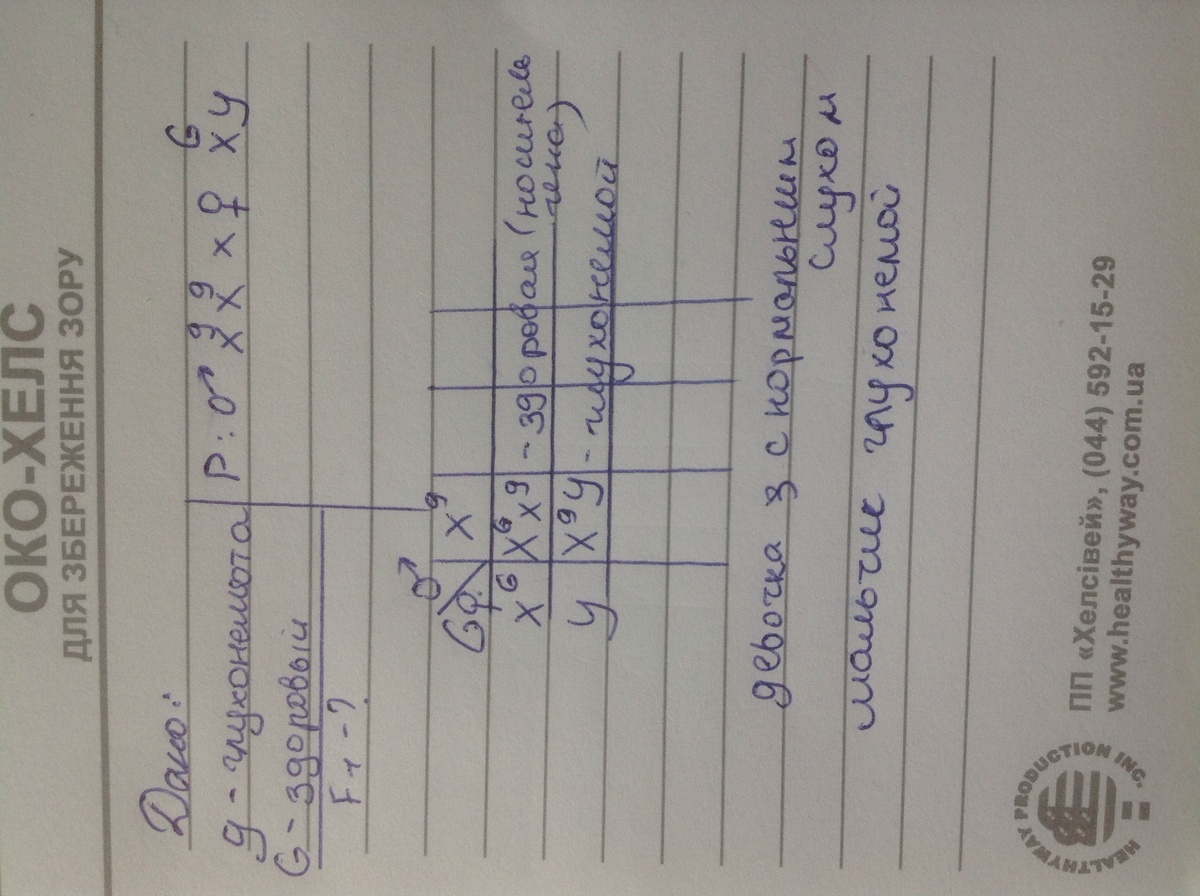 ОКО-ХЕЛС
ДЛЯ ЗБЕРЕЖЕННЯ ЗОРУ
Дано:
g - глухонемота
G - здоровый
F1 - ?
P: ♂ XgXg x ♀ XGY
G ♀ ♂ Xg
XG XGXg - здоровая (носитель
гена)
У XgУ - глухонемой
девочка з с нормальним
слухом
мальчик глухонемой
HEALTHYWAY PRODUCTION INC.
ПП «Хелсівей», (044) 592-15-29
www.healthyway.com.ua